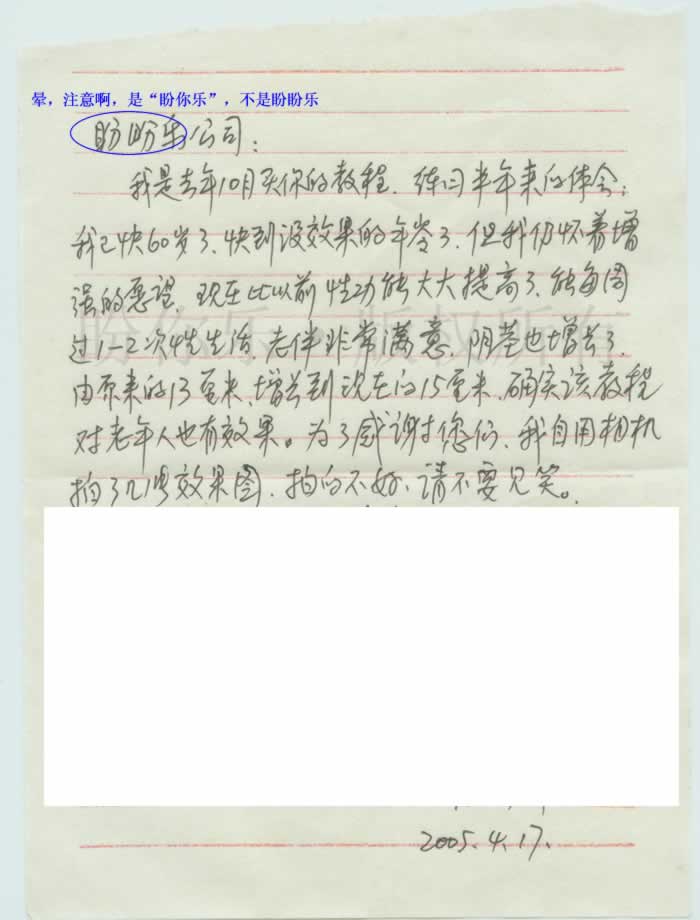 晕，注意啊，是“盼你乐”，不是盼盼乐
盼盼乐公司：
我是去年10月买你的教程．练习半年来的体会：
我已快60岁了．快到没效果的年岁了．但我仍怀着增
强的愿望．现在比以前性功能大大提高了．能每周
过1-2次性生活．老伴非常满意．阴茎也增长了．
由原来的13厘米．增长到现在的15厘米．确实该教程
对老年人也有效果。为了感谢您们．我自用相机
拍了几张效果图．拍的不好．请不要见笑。
盼你乐 版权所有
2005.4.17.